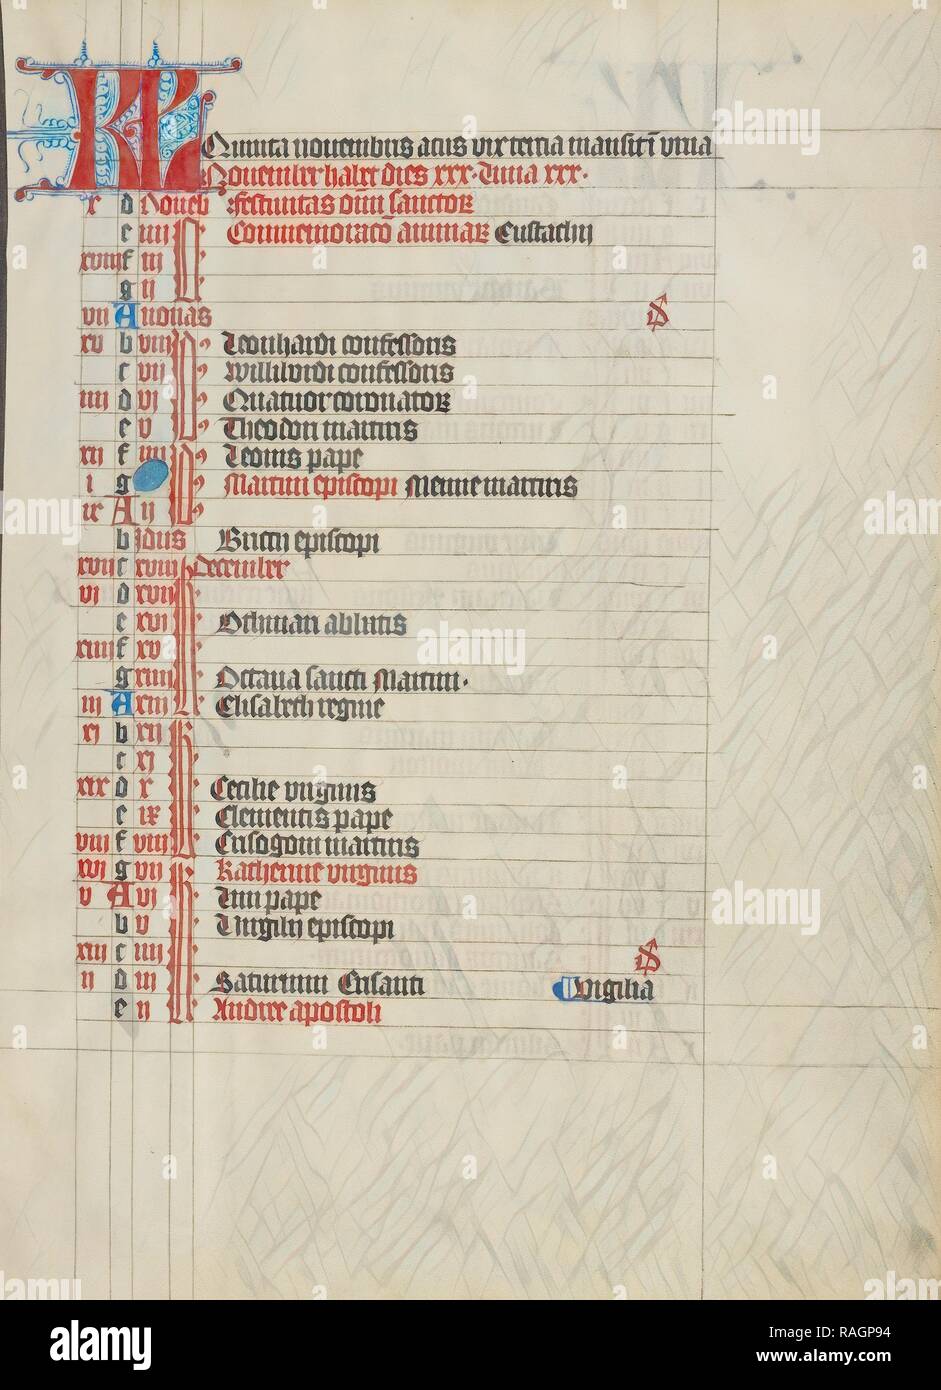 KL Quinta novembris acus vix tertia mansit i vrna
November habet dies xxx. Luna xxx.
x d Noueb festiuitas omi sanctoꝝ
e iiii Commemoraco animaꝝ Eustachij
xviii f iii
g ii
vii A nonas
xv b viii Leonhardi confessoris
c vii Willibrordi confessoris
iiii d vi Quatuor coronatoꝝ
e v Theodori martiris
xii f iiii Leonis pape
i g Martini episcopi Menne martiris
ix A ii
b idus Briccij episcopi
xvii c xviii decembr
vi d xvii
e xvi Othmari abbatis
xiiii f xv
g xiiii Octaua sancti Martini.
iii A xiii Elisabeth regine
xi b xii
c xi
xix d x Cecilie virginis
e ix Clementis pape
viii f viii Crisogoni martiris
xvi g vii Katherine virginis
v A vi Lini pape
b v Virgilij episcopi
xiii c iiii
ii d iii Saturnini Crisanti Vigilia
e ii Andree apostoli
alamy
alamy
Image ID: RAGP94
www.alamy.com